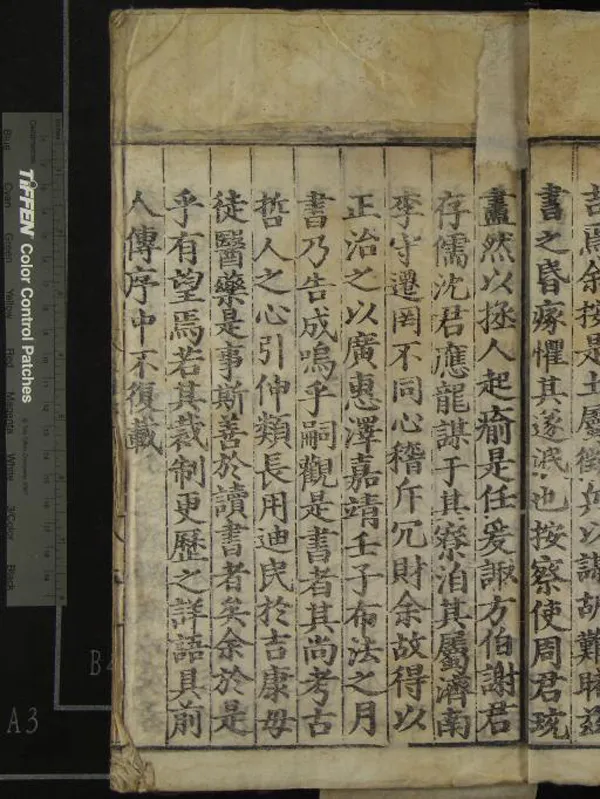 焉余按是土屬徵兵以講胡難睹茲
書之昏瘝懼其遂泯也按察使周君琉
盡然以拯人起瘉是任爰諏方伯謝君
存儒沈君應龍謀于其寮洎其屬濟南
李守遷罔不同心稽斥冗財余故得以
正治之以廣惠澤嘉靖壬子布法之月
書乃告成嗚乎嗣觀是書者其尚考古
哲人之心引伸類長用迪民於吉康毋
徒醫藥是事斯善於讀書者矣余於是
乎有望焉若其裁制更歷之詳語具前
人傳序中不復載
TIFFEN Color Control Patches
Blue Cyan Green Yellow Red Magenta White 3Color Black
B4
A3